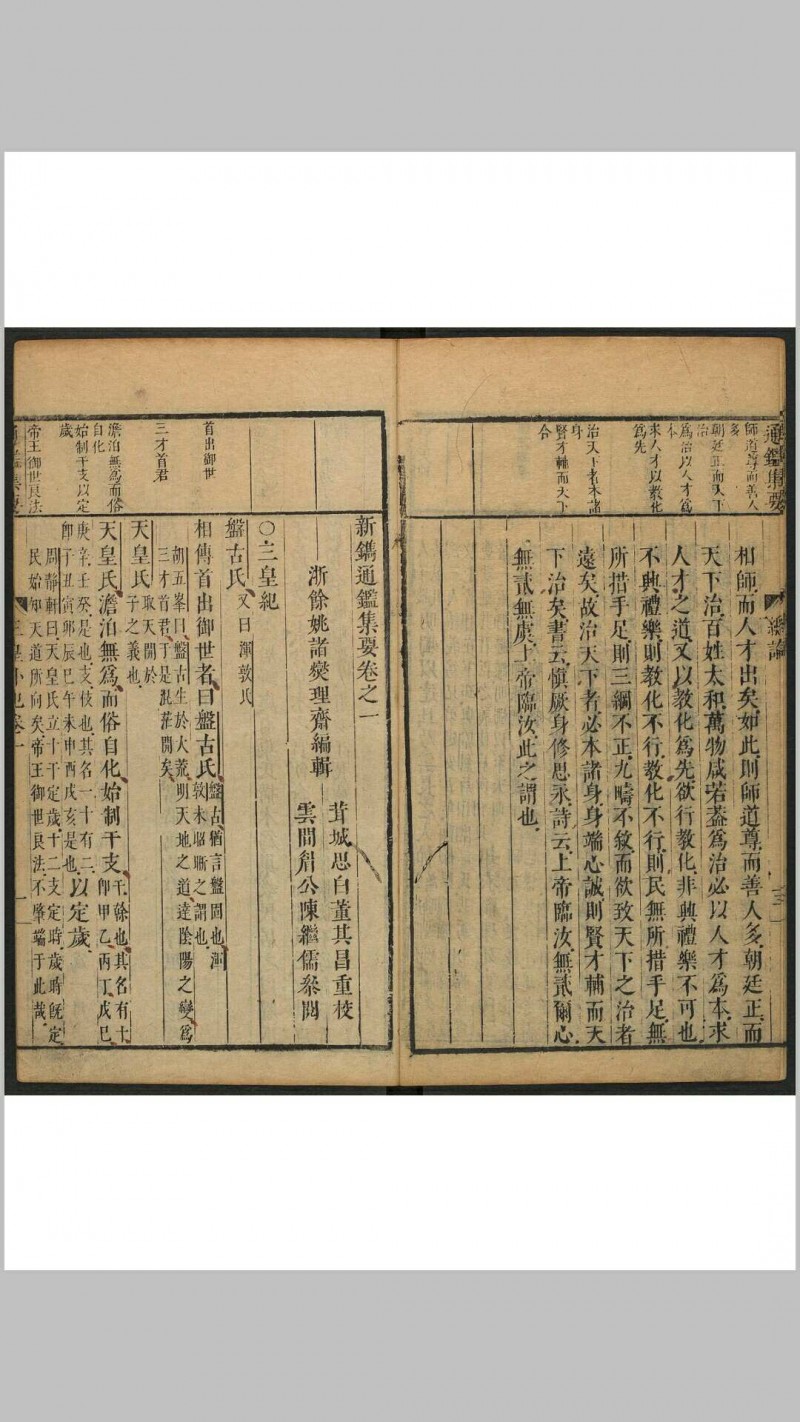 通鑑集要
總論
三
師道尊而善人
多
朝廷正而天下
治
爲治以人才爲
本
求人才以敎化
爲先
治天下者本諸
身
賢才輔而天下
合
相師而人才出矣如此則師道尊而善人多朝廷正而
天下治百姓太和萬物咸若葢爲治必以人才爲本求
人才之道又以敎化爲先欲行敎化非興禮樂不可也
不興禮樂則敎化不行敎化不行則民無所措手足無
所措手足則三綱不正九疇不敘而欲致天下之治者
遠矣故治天下者必本諸身身端心誠則賢才輔而天
下治矣書云愼厥身修思永詩云上帝臨汝無貳爾心
無貳無虞上帝臨汝此之謂也
新鐫通鑑集要卷之一
浙餘姚諸燮理齋編輯
茸城思白董其昌重校
雲間眉公陳繼儒叅閱
○三皇紀
盤古氏又曰渾敦氏
首出御世
相傳首出御世者曰盤古氏盤古猶言盤固也渾
敦未昭晰之謂也
胡五峯曰盤古生於大荒明天地之道達陰陽之變爲
三才首君于是混茫開矣
三才首君
天皇氏取天開於
子之義也
澹泊無爲而俗
自化
始制干支以定
歲
天皇氏澹泊無爲而俗自化始制干支干幹也其名有十
卽甲乙丙丁戊己
庚辛壬癸是也支枝也其名一十有二
卽子丑寅卯辰巳午未申酉戌亥是也以定歲
帝王御世良法
周靜軒曰天皇氏立十干定歲十二支定時歲時旣定
民始知天道所向矣帝王御世良法不肇端于此哉
通鑑集要
三皇卷一
一